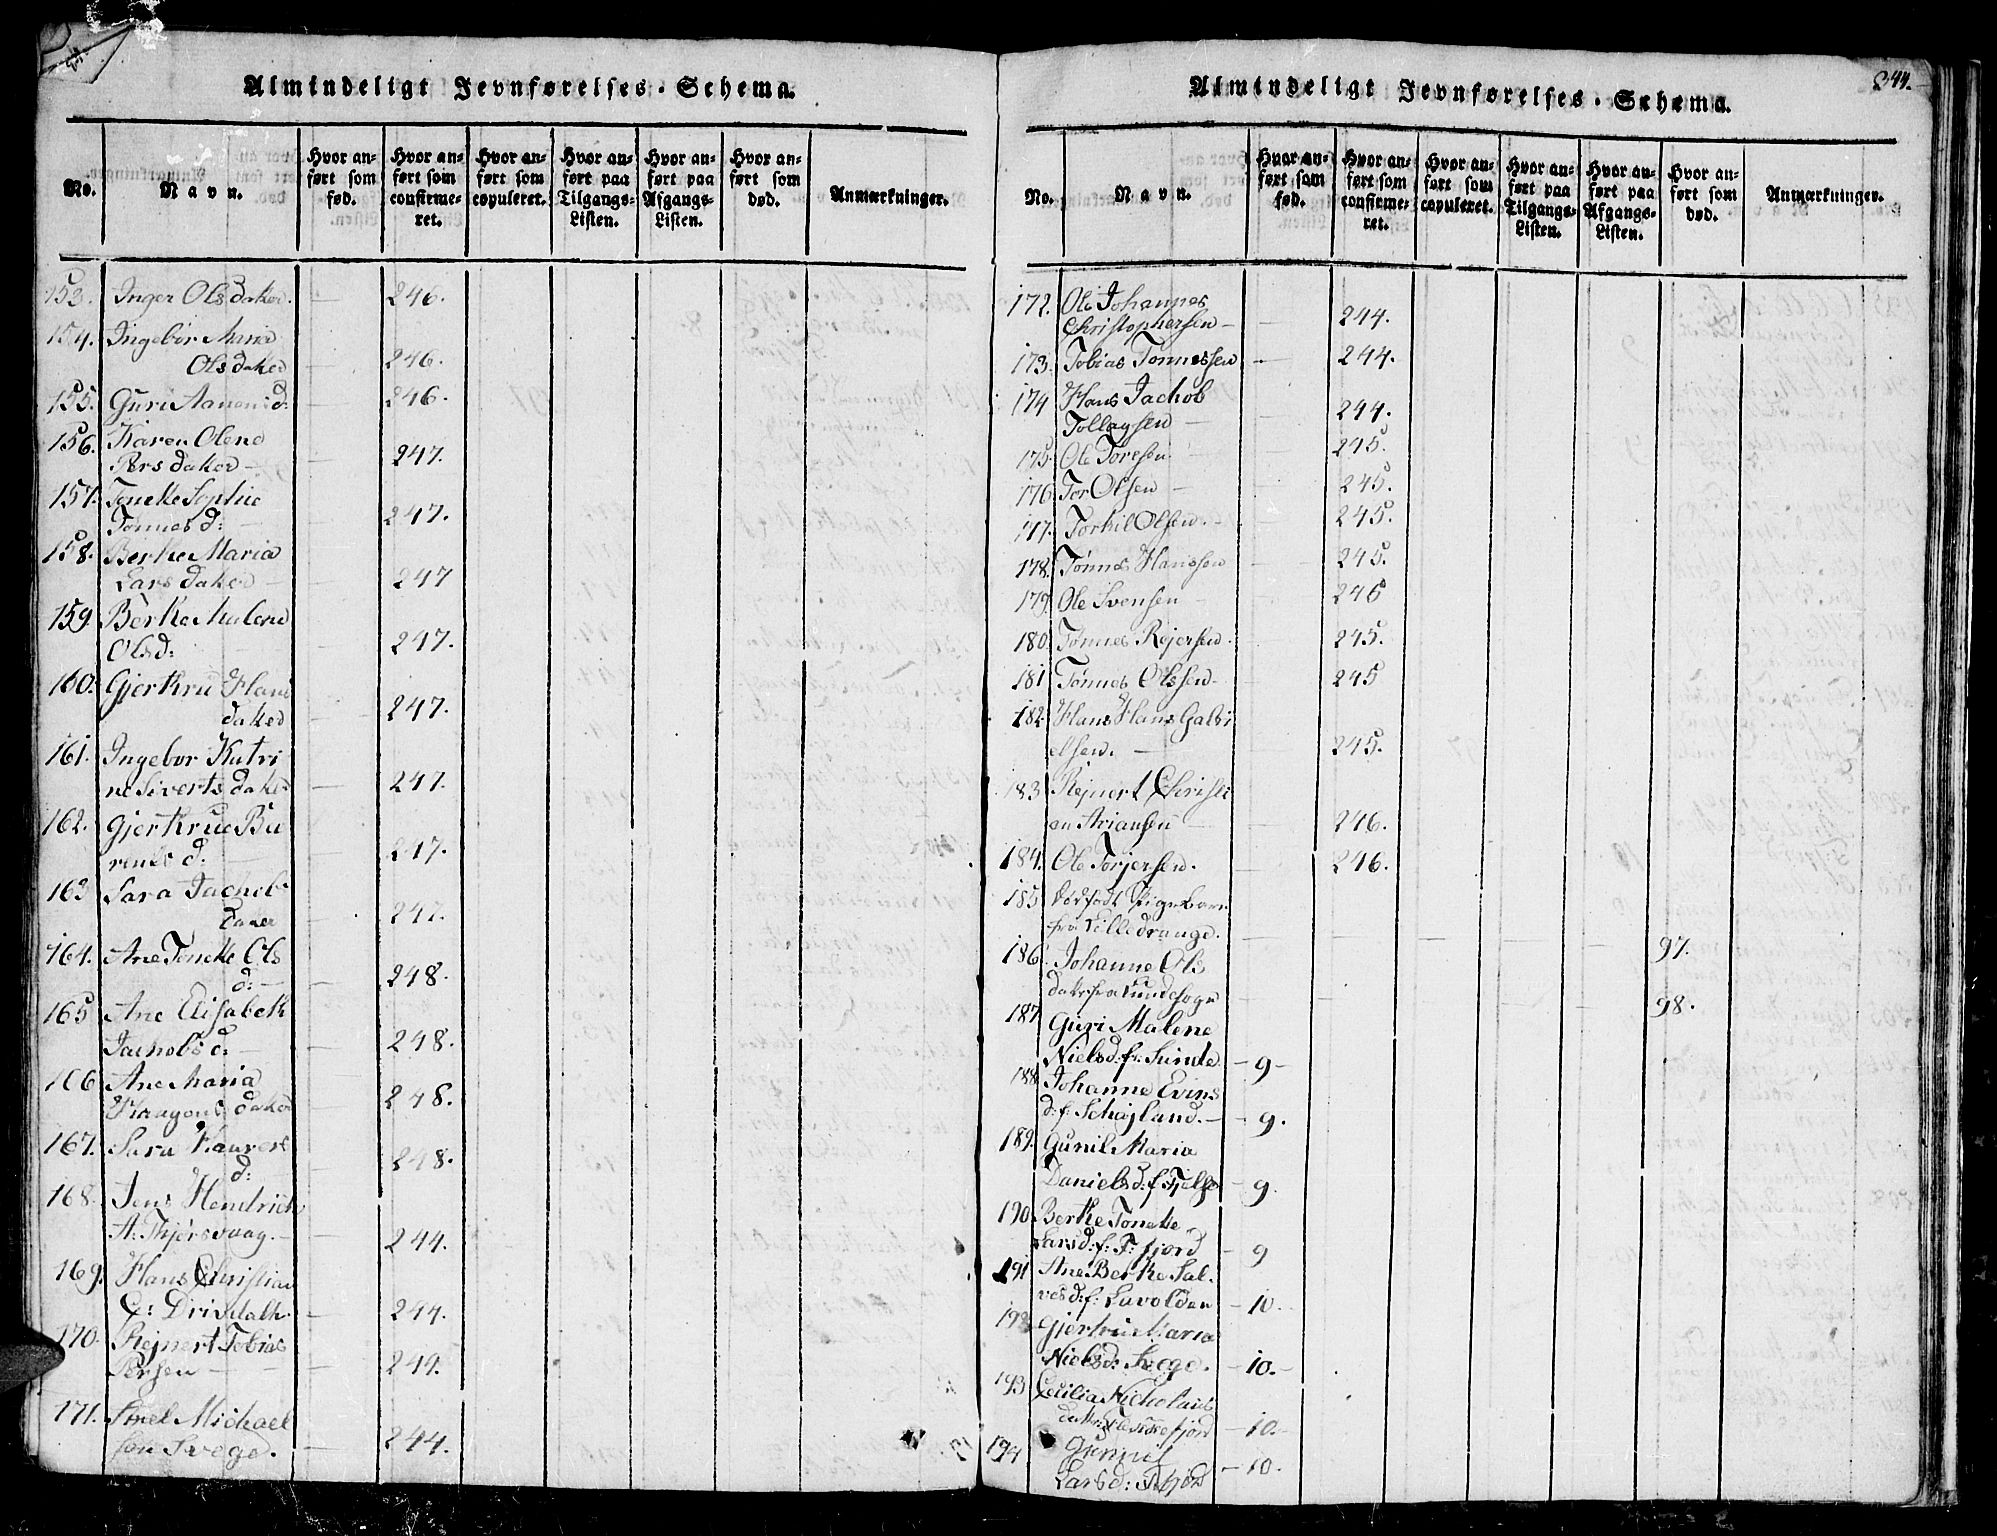 Almindeligt Jevnførelses-Schema.
No.
Navn.
Hvor an-
ført som
fød.
Hvor an-
ført som
confirme-
ret.
Hvor an-
ført som
copuleret.
Hvor an-
ført paa
Tilgangs-
Listen.
Hvor an-
ført paa
Afgangs-
Listen.
Hvor an-
ført som
død.
Anmærkninger.
153. Inger Olsdatter. 246.
154. Ingebor Maria
Olsdatter 246.
155. Guri Aanensd: 246.
156. Karen Olene
Persdatter 247.
157. Tonette Sophie
Tønnesd: 247.
158. Berthe Maria
Larsdatter 247
159 Berthe Malene
Olsd: 247.
160. Gjertru Hans
datter 247.
161. Ingebor Katri
ne Sivertsdatter 247.
162. Gjertrue Bu
rents d. 247.
163 Sara Jachobs
datter 247.
164. Ane Tonette Ols
d: 248.
165 Ane Elisabeth
Jachobs d: 248.
166 Ane Maria
datter 248.
167. Sara
d: 248.
168. Jens Hendrich
A: Thjørsvaag. 244.
169. Hans Christian
C: Drivdalh. 244.
170. Rejnert Tobias
Persen 244.
171. Michael
sen Svege. 244.
Almindeligt Jevnførelses-Schema.
344.
No.
Navn.
Hvor an-
ført som
fød.
Hvor an-
ført som
confirme-
ret.
Hvor an-
ført som
copuleret.
Hvor an-
ført paa
Tilgangs-
Listen.
Hvor an-
ført paa
Afgangs-
Listen.
Hvor an-
ført som
død.
Anmærkninger.
172. Ole Johannes
Christophersen 244.
173. Tobias Tønnessen 244.
174 Hans Jachob
Tollagsen 244.
175. Ole Toresen 245.
176 Tor Olsen 245.
177. Torkil Olsen. 245.
178. Tønnes Hanssen 245.
179. Ole Svensen 245
180. Tønnes Rejersen. 245.
181 Tønnes Olssen 245
182. Hans Hans Gabri
elsen. 245.
183 Rejnert Christi
an Ariansen 246.
184. Ole Torjersen. 246.
185 Dødfødt Pigebarn
fra Lilledrange. 97.
186. Johanne Ols
datr fra Lundesogn 98.
187 Guri Malene
Nielsd: fr: Sunde 9
188 Johanne Evins
d: f: Schøjland. 9.
189. Gunil Maria
Danielsd: f: Tjelse 9.
190. Berthe Tonette
Larsd: f: F:fjord 9
191 Ane Berthe Sal-
vesd: f: Lavolden 10.
192 Gjertru Maria
Nielsd: Svege. 10.
193 Cecilia Nicholais
datter: Fleskefjord 10.
194 Gunnil
Larsd: F:fjord 10.